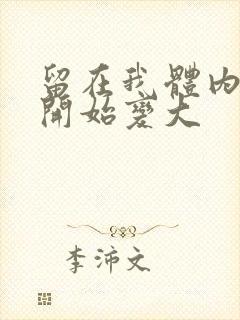 留在我體内
開始變大
李沛文